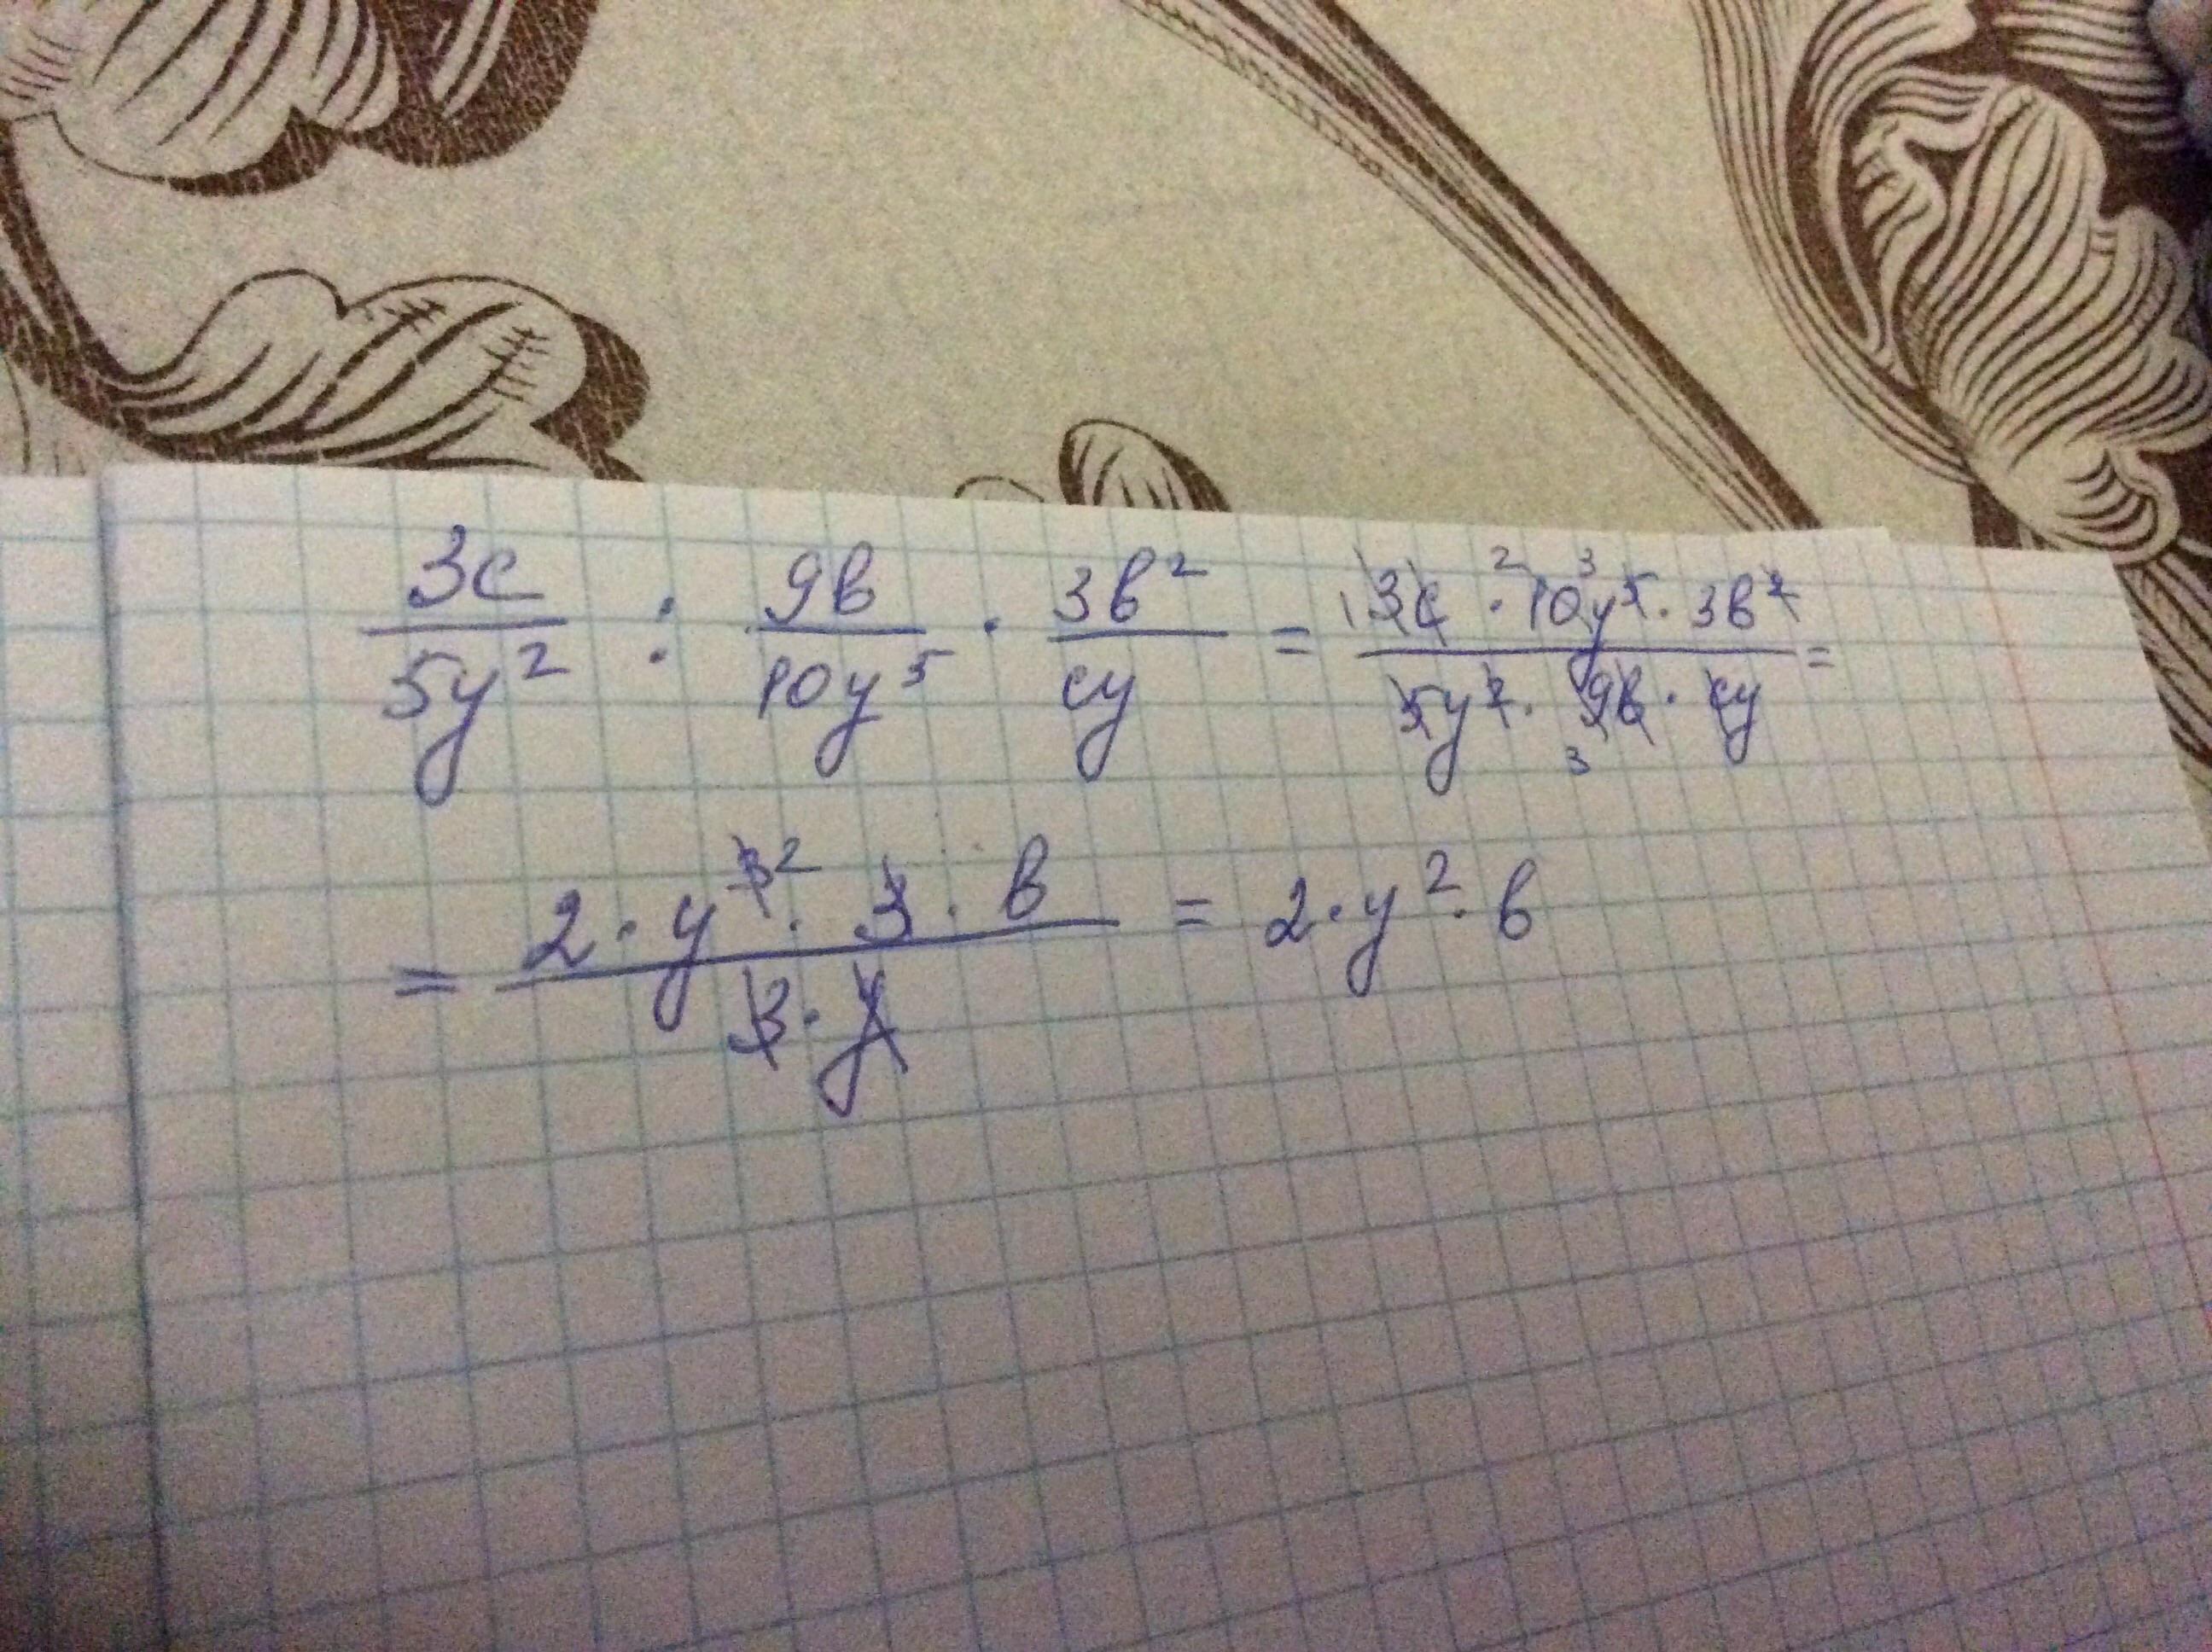 3c/5y² : 9b/10y⁵ · 3b²/cy = 3c · 10y⁵ · 3b²/5y² · 9b · cy =
= 2 · y³ ² · 3 · b/3 · y = 2 · y² · b